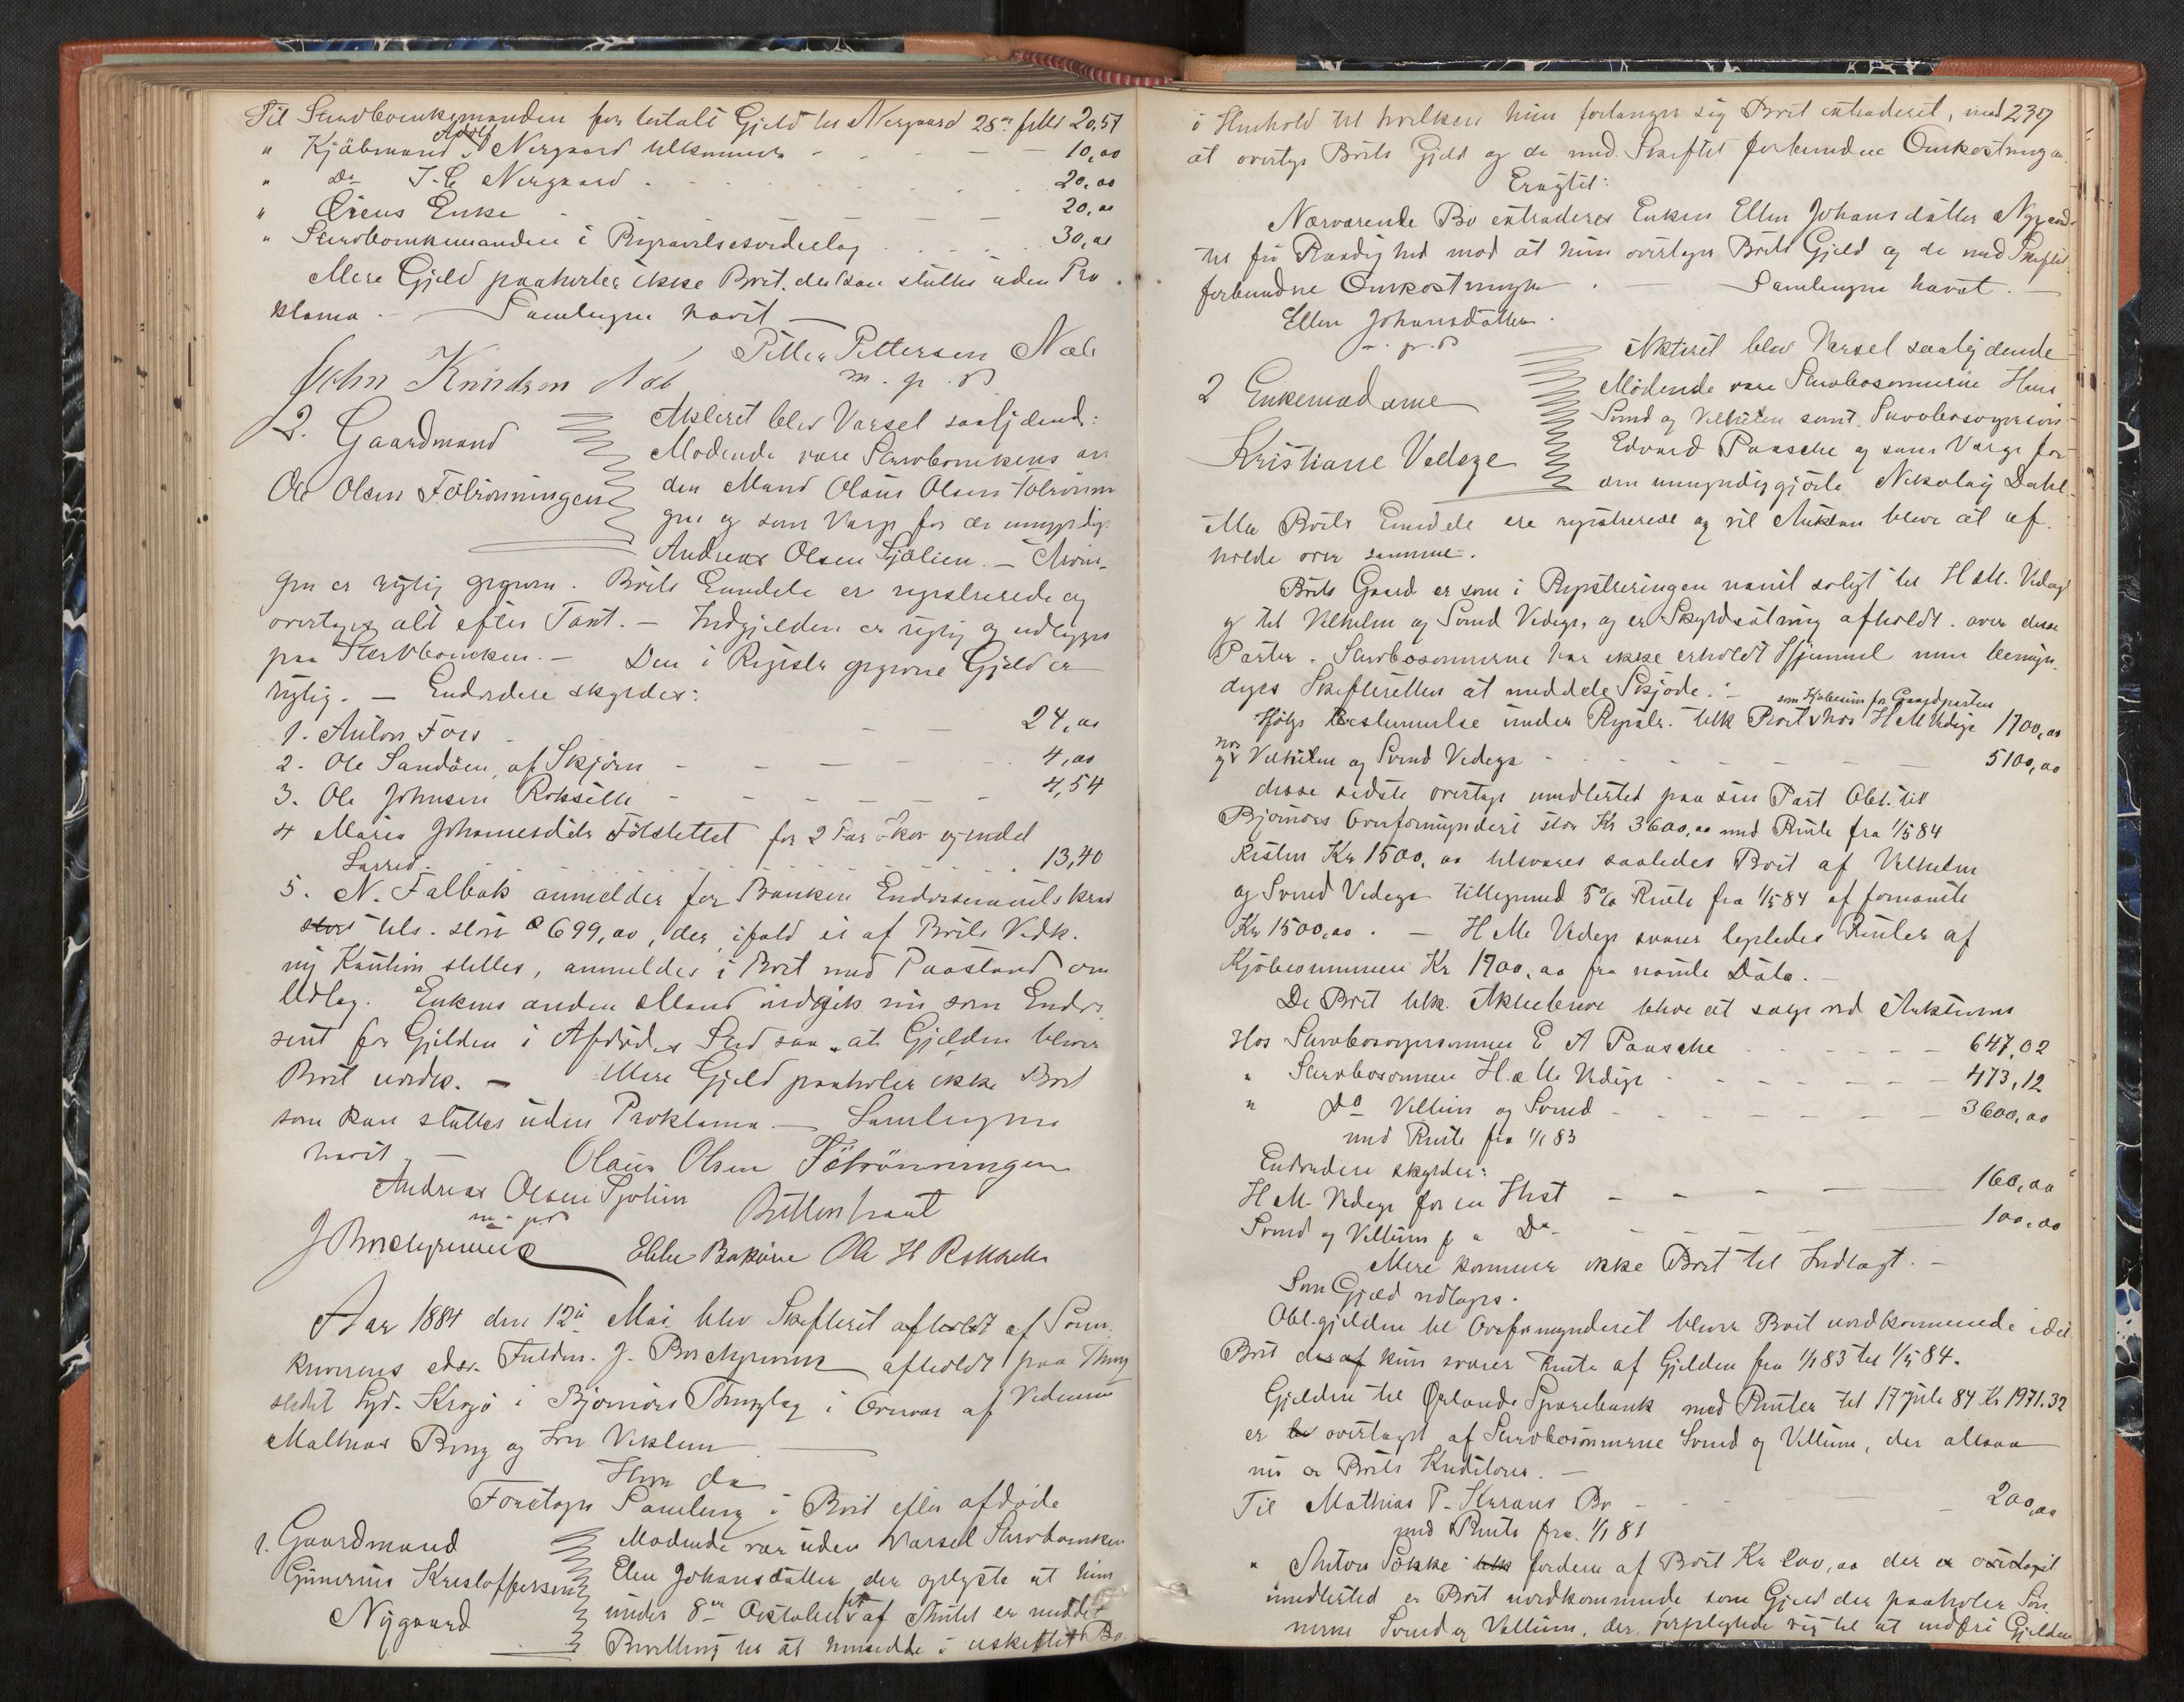 Til Stervboenkemanden for betalt Gjeld til Nergaard 28de febr 20,57
" Kjöbmand Adolf Nergaard tilkommer - - - 10,00
" Do J. C Nergaard - - - 20,00
" Örens Enke - - - 20,00
" Stervboenkemanden i Begravelsesvederlag - - - 30,00
Mere Gjeld paahviler ikke Boet, der kan sluttes uden Pro
klama. — Samlingen hævet —
Petter Pettersen Næs
m. p. P
John Knudsen Næs
2. Gaardmand
Ole Olsen Fölrönningen
Akteret blev Varsel saalydende:
Mödende vare Stervboenkens an
den Mand Olaus Olsen Fölrönnin
gen og som Værge for de umyndige
Andreas Olsen Sjölien. — Arvin-
gen er rigtig opgiven. Boets Eiendele er registrerede og
overtages alt efter Taxt. — Indgjelden er rigtig og udlægges
paa Stervboenken. — Den i Registr. opgivne Gjeld er
rigtig. — Endvidere skyldes:
1. Anton Fors - - - 24,00
2. Ole Sandöen, af Skjörn - - - 4,00
3. Ole Johnsen Rokseth - - - 4,54
4 Maria Johannesdtr Fölslettet for 2 Par Skor og endel
Lærred - - - 13,40
5. N. Falbak anmelder for Banken Endossements krav
stort til. stor 699,00, der, ifald ei af Boets Vedk.
ny Kaution stilles, anmeldes i Boet med Paastand om
Udlæg. Enkens anden Mand indgik nu som Endos
sent for Gjelden i Afdödes Sted saa at Gjelden bliver
Boet uvedk. — Mere Gjeld paahviler ikke Boet
som kan sluttes uden Proklama — Samlingen
hævet. — Olaus Olsen Fölrönningen
Andreas Olsen Sjölien
m. p. P
Ole H Rokseth
Aar 1884 den 12te Mai blev Skifteret afholdt af Soren
skriverens edsv. Fuldm. J. afholdt paa Thing
stedet Syd-Krogö i Bjørnörs Thinglag i Overvær af Vidnerne
Mathias Berg og Iver Viklem
Hvor da
Foretoges Samling i Boet efter afdöde
1. Gaardmand
Gunerius Kristoffersen
Nygaard
Mödende var uden Varsel Stervboenken
Elen Johansdatter, der oplyste at hun
under 8de Oktober er af Amtet er meddelt
Bevilling til at hensidde i uskiftet Bo
i Henhold til hvilken hun forlanger sig Boet extraderet, mod 239
at overtage Boets Gjeld og de med Skiftet forbundne Omkostninger.
Eragtet:
Nærværende Bo extraderes Enken Ellen Johansdatter Nygaard
til fri Raadighed mod at hun overtager Boets Gjeld og de med Skiftet
forbundne Omkostninger. — Samlingen hævet. —
Ellen Johansdatter.
m. p. P
2 Enkemadame
Kristiane Vedege
Akteret blev Varsel saalydende
Mödende vare Stervbosönnerne Hans
Svend og Vilhelm samt Stervbosvigersön
Edvard Paasche og som Værge for
den umyndiggjorte Nikolay Dahl.
Alle Boets Eiendele ere registrerede og vil Auktion blive at af
holde over samme.
Boets Gaard er som i Registreringen nævnt solgt til H. M. Vedege
og til Vilhelm og Svend Vedege, og er Skyldsætning afholdt over disse
Parter. Stervbosönnerne har ikke erholdt Hjemmel men bemyn
diges Skifteretten at meddele Skjöde. —
Ifölge Bestemmelse under Registr. tilk Boet hos H M Vedege som Kjöbesum for Gaardparten 1700,00
og hos Vilhelm og Svend Vedege - - - 5100,00
disse sidste overtage imidlertid paa sin Part Obl. til
Bjørnörs Overformynderi stor Kr 3600,00 med Rente fra 1/5 84
Resten Kr 1500,00 tilsvares saaledes Boet af Vilhelm
og Svend Vedege tilligemed 5% Rente fra 1/5 84 af fornævnte
Kr 1500,00. — H M Vedege svarer ligeledes Renter af
Kjöbesummen Kr 1700,00 fra nævnte Dato. —
De Boet tilk. Aktiebreve blive at sælge ved Auktionen
Hos Stervbosvigersönnen E A Paasche - - - 647,02
" Stervbosönnen H. M. Vedege - - - 473,12
" Do Villum og Svend - - - 3600,00
med Rente fra 1/1 83
Endvidere skyldes:
H M. Vedege for en Hest - - - 160,00
Svend og Villum f " Do - - - 100,00
Mere kommer ikke Boet til Indtægt. —
Som Gjæld udtages.
Obl.gjelden til Overformynderiet bliver Boet uvedkommende idet
Boet deraf kun svarer Rente af Gjelden fra 1/1 83 til 1/5 84.
Gjelden til Ørlands Sparebank med Renter til 17 Juli 84 Kr 1971.32
er overtaget af Stervbosönnerne Svend og Villum, der altsaa
nu er Boets Kreditorer. —
Til Mathias P. Bo - - - 200,00
med Rente fra 1/1 81
" Anton Sökke fordrer af Boet Kr 200,00 der er overtaget
imidlertid er Boet uvedkommende som Gjeld der paahviler Sön
nerne Svend og Villum, der forpligtede sig til at indfri Gjelden